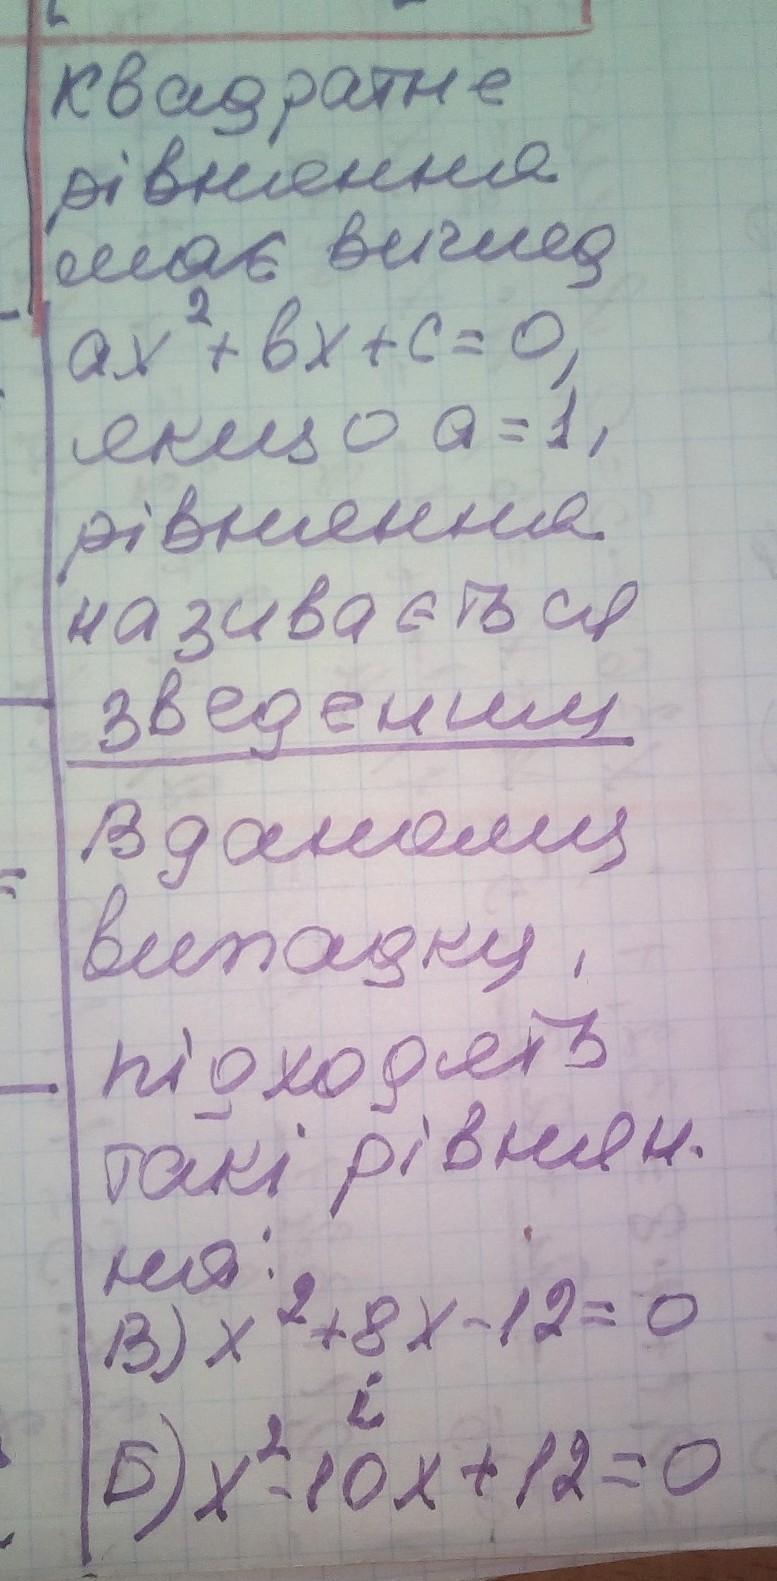 Квадратне
рівняння
має вигляд
ax²+bx+c=0,
якщо a=1,
рівняння
називається
зведеним
В даному
випадку,
підходять
такі рівнян.
ня:
В) x²+8x-12=0
і
Б) x²-10x+12=0